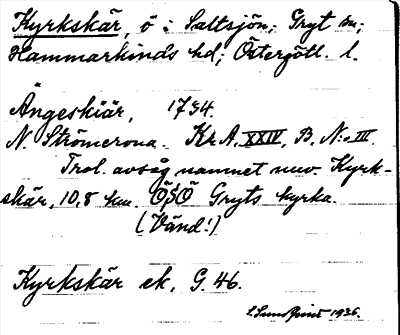 Kyrkskär, ö i Saltsjön; Gryt sn;
Hammarkinds hd; Östergötl. l.
Ängeskiär, 1734.
N. Strömerona. Kr A. XXIV, B. N:o III.
Trol. avsåg namnet nuv. Kyrk-
skär, 10,8 km. ÖSÖ Gryts kyrka.
(Vänd!)
Kyrkskär ek, G. 46.
S. Sundqvist 1936.